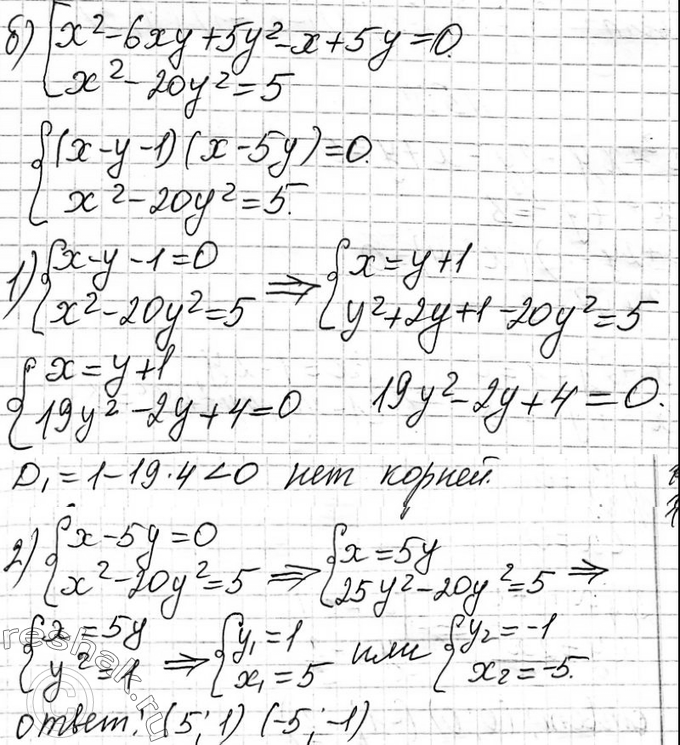 б) {x²-6xy+5y²-x+5y=0.
x²-20y²=5
{(x-y-1)(x-5y)=0.
x²-20y²=5.
1) {x-y-1=0 ⇒ {x=y+1
x²-20y²=5 y²+2y+1-20y²=5
{x=y+1
19y²-2y+4=0 19y²-2y+4=0.
D₁=1-19·4<0 нет корней.
2) {x-5y=0 ⇒ {x=5y ⇒
x²-20y²=5 25y²-20y²=5
{x=5y ⇒ {y₁=1 или {y₂=-1
y²=1 x₁=5 x₂=-5.
ответ: (5; 1) (-5; -1)
reshak.ru